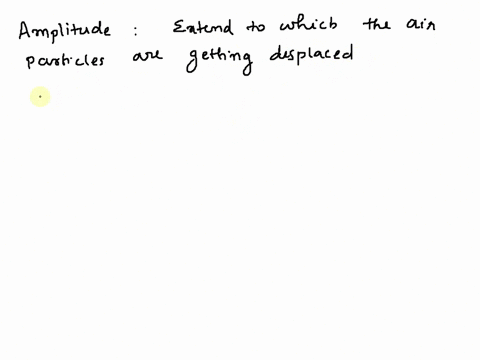 Amplitude : Extend to which the air
particles are getting displaced